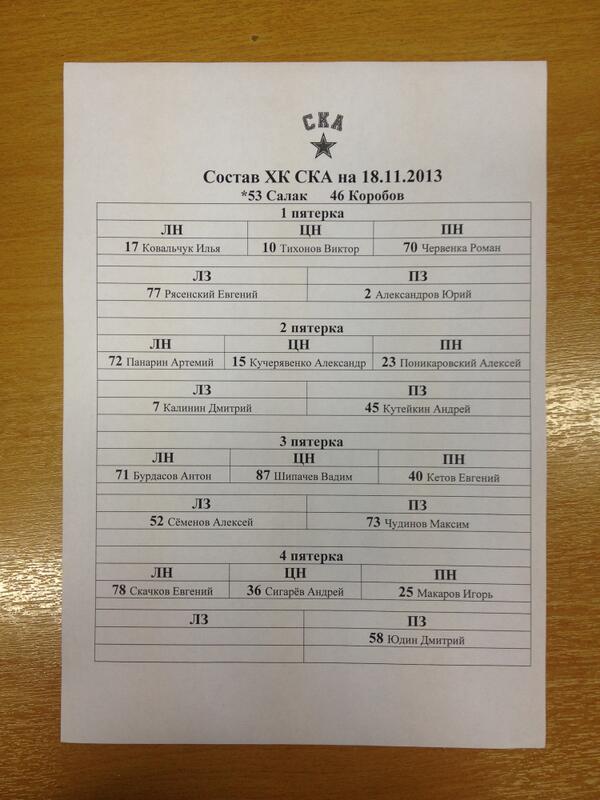 СКА
Состав ХК СКА на 18.11.2013
*53 Салак 46 Коробов
1 пятерка
ЛН ЦН ПН
17 Ковальчук Илья 10 Тихонов Виктор 70 Червенка Роман
ЛЗ ПЗ
77 Рясенский Евгений 2 Александров Юрий
2 пятерка
ЛН ЦН ПН
72 Панарин Артемий 15 Кучерявенко Александр 23 Поникаровский Алексей
ЛЗ ПЗ
7 Калинин Дмитрий 45 Кутейкин Андрей
3 пятерка
ЛН ЦН ПН
71 Бурдасов Антон 87 Шипачев Вадим 40 Кетов Евгений
ЛЗ ПЗ
52 Сёменов Алексей 73 Чудинов Максим
4 пятерка
ЛН ЦН ПН
78 Скачков Евгений 36 Сигарёв Андрей 25 Макаров Игорь
ЛЗ ПЗ
58 Юдин Дмитрий